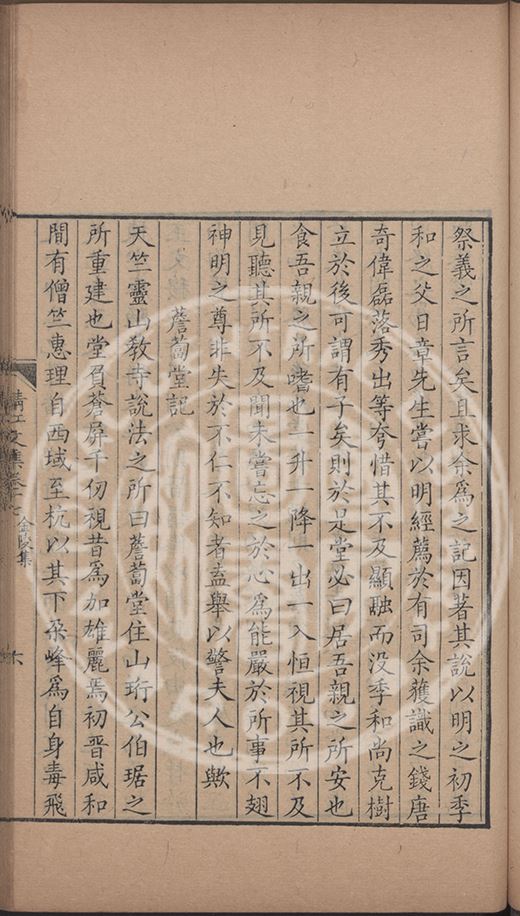 祭義之所言矣且求余爲之記因著其說以明之初季
和之父日章先生嘗以明經薦於有司余獲識之錢唐
奇偉磊落秀出等夸惜其不及顯融而没季和尚克樹
立於後可謂有子矣則於是堂必曰居吾親之所安也
食吾親之所嗜也一升一降一出一入恒視其所不及
見聽其所不及聞未嘗忘之於心爲能嚴於所事不翅
神明之尊非失於不仁不知者盍舉以警夫人也歟
薝蔔堂記
天竺靈山教寺說法之所曰薝蔔堂住山珩公伯琚之
所重建也堂負蒼屏千仞視昔爲加雄麗焉初晉咸和
間有僧竺惠理自西域至杭以其下朶峰爲自身毒飛
清江文集卷十七 金陵集
六